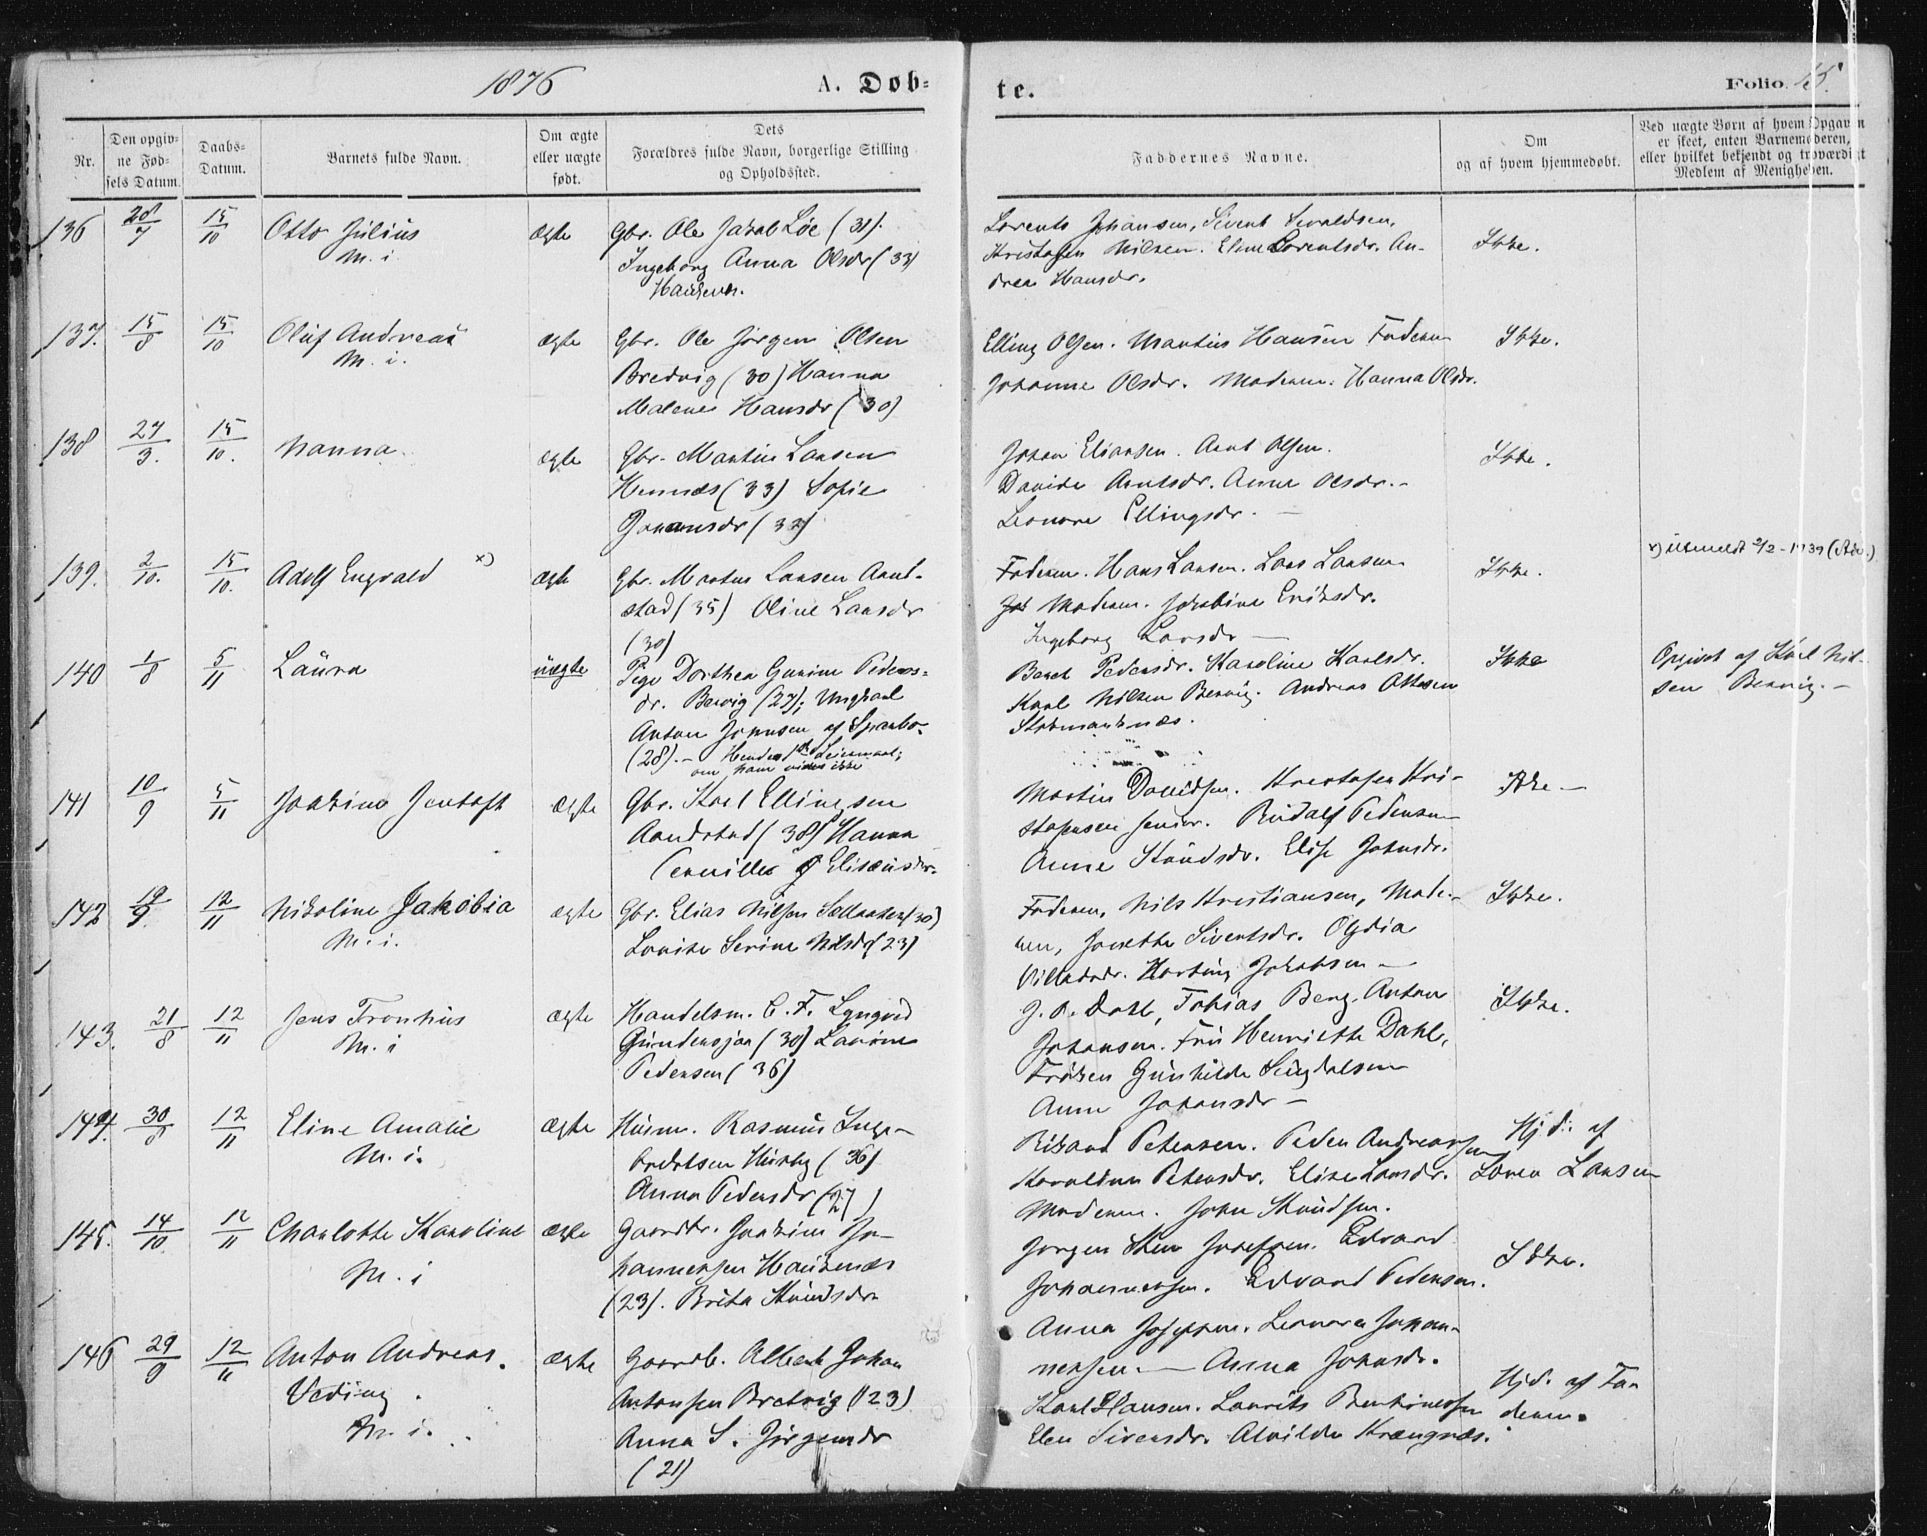 1876
A. Døb-
te.
Folio 15.
Nr.
Den opgiv-
ne Fød-
sels Datum.
Daabs-
Datum.
Barnets fulde Navn.
Om ægte
eller uægte
født.
Dets
Forældres fulde Navn, borgerlige Stilling
og Opholdssted.
Faddernes Navne.
Om
og af hvem hjemmedøbt.
Ved uægte Børn af hvem Opgaven
er skeet, enten Barnemoderen,
eller hvilket bekjendt og troværdigt
Medlem af Menigheden.
136 28/7 15/10 Otto Julius ægte Gbr. Ole Jakob Løe (31).
M. i
Ingeborg Anna Olsdr (33)
Lorents Johansen, Sivert Sivaldsen,
Kristofer Nilsen. Eline Lorentsdr. An-
drea Hansdr.
Ikke.
137. 15/8 15/10 Oluf Andreas ægte Gbr. Ole Jørgen Olsen
M. i.
Bredvig (30) Hanna
Malene Hansdr (30)
Elling Olsen. Martius Hansen Faderen
Johanne Olsdr. Moderen. Hanna Olsdr.
Ikke.
138 27/3. 15/10. Nanna ægte Gbr. Martin Larsen
Hennæs (33) Sofie
Johansdr (33)
Johan Eliassen. Arnt Olsen.
Davida Arntsdr. Anna Olsdr.-
Leonore Ellingsdr. -
Ikke.
139. 2/10. 15/10. Adolf Engvald x) ægte Gbr. Martus Larsen Aand-
stad (35) Oline Larsdr
(30)
Faderen. Hans Larsen. Lars Larsen
Moderen. Jakobine Eriksdr.
Ingeborg Larsdr -
Ikke.
x) utmeldt 2/2-1939 (Adv.)
140 1/8 5/11 Laura uægte Pige Dorthea Gurine Peders-
dr. Bervig (27); Ungkarl
Anton Johnsen af
(28).- Hendes 1st Leiermaal;
om hans vides ikke
Beret Pedersdr. Karoline Karlsdr.
Karl Nilsen Bervig. Andreas Ottesen
Stokmarknæs.
Ikke
Opgivet af Karl Nil-
sen Bervig.-
141 10/9 5/11 Joakim Jentoft ægte Gbr. Karl Ellingsen
Aandstad (38) Hanna
Elisæusdr.
Martin Davidsen. Kristofer Kri-
stofersen senior. Rudolf Pedersen
Anne Knudsdr. Elise Johnsdr.
Ikke -
142 19/9. 12/11 Nikoline Jakobia ægte Gbr. Elias Nilsen (30)
M. i.
Lovise Serine Nilsdr (23)
Faderen, Nils Kristiansen, Mode-
ren, Jonetta Sivertsdr. Olydia
Villadsdr. Hartvig Jakobsen -
Ikke.
143. 21/8 12/11 Jens Fronhius ægte Handelsm. C. F. Lyngved
M. i
(30)
Pedersen (36)
J. A. Dahl, Tobias Berg. Anton
Johansen. Fru Henriette Dahl,
Frøken Gunhilda
Anne Johansdr -
Ikke.
144. 30/8 12/11 Eline Amalie ægte Husm. Rasmus Inge-
M. i.
bregtsen Husby (36)
Anna Pedersdr (27)
Rikard Petersen. Peder Andreassen
Karoline Petersdr. Elise Larsdr.
Moderen. John Knudsen.
Hjd. af
Søren Larsen
145. 14/10. 12/11 Charlotte Karoline ægte Gaardbr. Joakim Jo-
M. i
hannessen Haukenæs
(23). Brita Knudsdr
Jørgen Josefsen. Edvard
Johannessen. Edvard Pedersen.
Anna Josefsen. Leonora Johan-
nessen. - Anna Johnsdr.
Ikke.
146 29/9 12/11 Anton Andreas. ægte Gaardb. Albert Johan
Antonsen Bredvig (23)
M. i.
Anna S. Jørgensdr
(21)
Karl Hansen. Laurits
Elen Siversdr. Alvilda Krængnæs.
Hjd. af Fa-
deren.